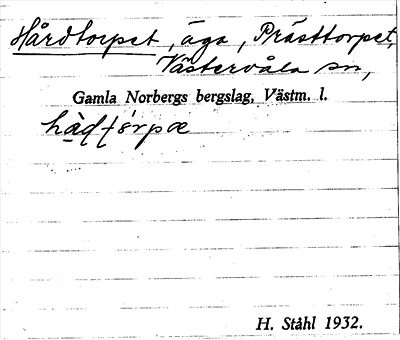 Hårdtorpet, äga, Prästtorpet,
Västervåla sn,
Gamla Norbergs bergslag, Västm. l.
hàḍṭórpæ
H. Ståhl 1932.